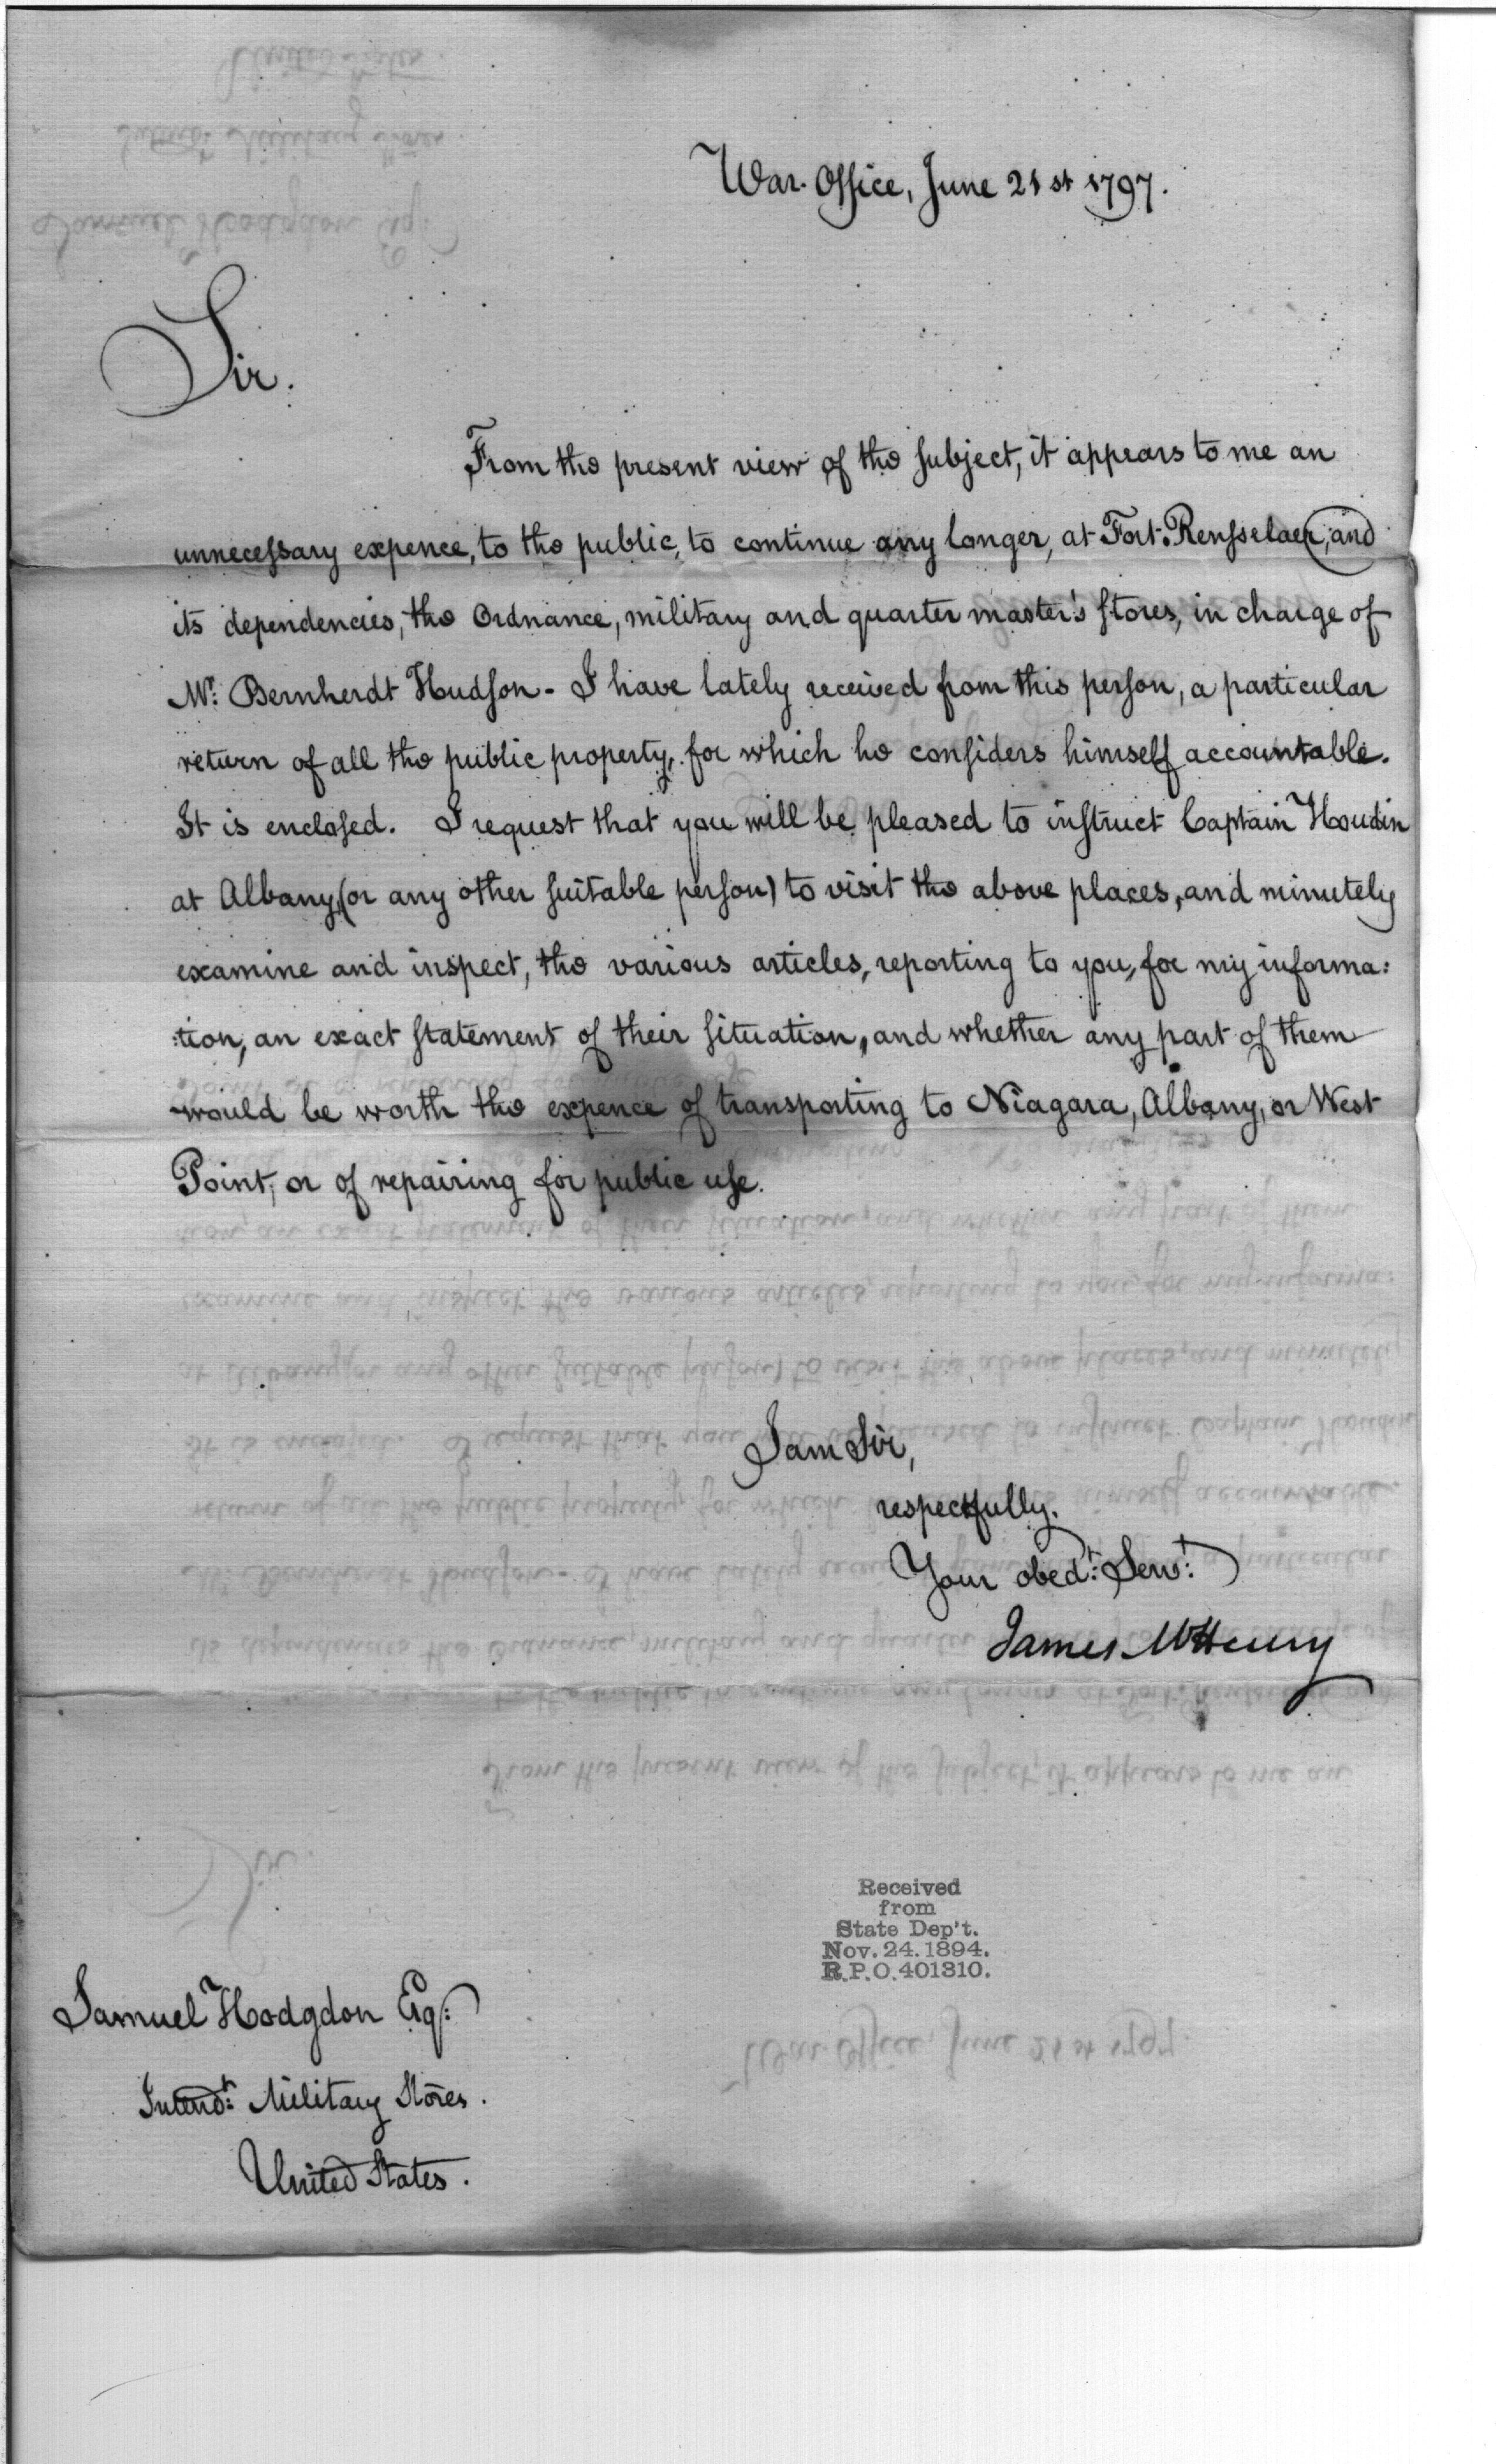 War Office, June 21st 1797.
Sir.
From the present view of the subject, it appears to me an
unnecessary expence, to the public, to continue any longer, at Fort Rensselaer, and
its dependencies, the Ordnance, military and quarter master's stores, in charge of
Mr. Bernherdt Hudson - I have lately received from this person, a particular
return of all the public property, for which he considers himself accountable.
It is enclosed. I request that you will be pleased to instruct Captain Houdin
at Albany, (or any other suitable person) to visit the above places, and minutely
examine and inspect, the various articles, reporting to you, for my informa:
:tion, an exact statement of their situation, and whether any part of them
would be worth the expence of transporting to Niagara, Albany, or West
Point, or of repairing for public use.
I am Sir,
respectfully.
Your obedt. Servt.
James McHenry
Received
from
State Dep't.
Nov. 24. 1894.
R.P.O. 401310.
Samuel Hodgdon Esq:
Intendt: Military Stores.
United States.